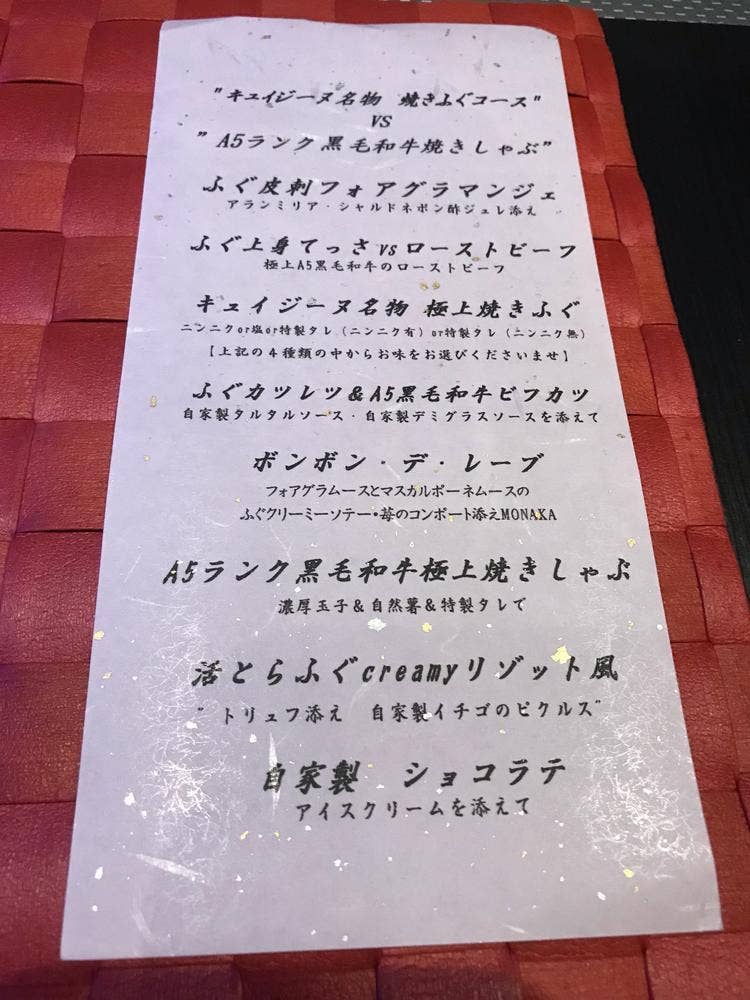 "キュイジーヌ名物　焼きふぐコース"
VS
"A5ランク黒毛和牛焼きしゃぶ"
ふぐ皮刺フォアグラマンジェ
アランミリア・シャルドネポン酢ジュレ添え
ふぐ上身てっさvsローストビーフ
極上A5黒毛和牛のローストビーフ
キュイジーヌ名物 極上焼きふぐ
ニンニクor塩or特製タレ（ニンニク有）or特製タレ（ニンニク無）
【上記の４種類の中からお味をお選びくださいませ】
ふぐカツレツ＆A5黒毛和牛ビフカツ
自家製タルタルソース・自家製デミグラスソースを添えて
ボンボン・デ・レーブ
フォアグラムースとマスカルポーネムースの
ふぐクリーミーソテー・苺のコンポート添えMONAKA
A5ランク黒毛和牛極上焼きしゃぶ
濃厚玉子＆自然薯＆特製タレで
活とらふぐcreamyリゾット風
"トリュフ添え　自家製イチゴのピクルス"
自家製　ショコラテ
アイスクリームを添えて